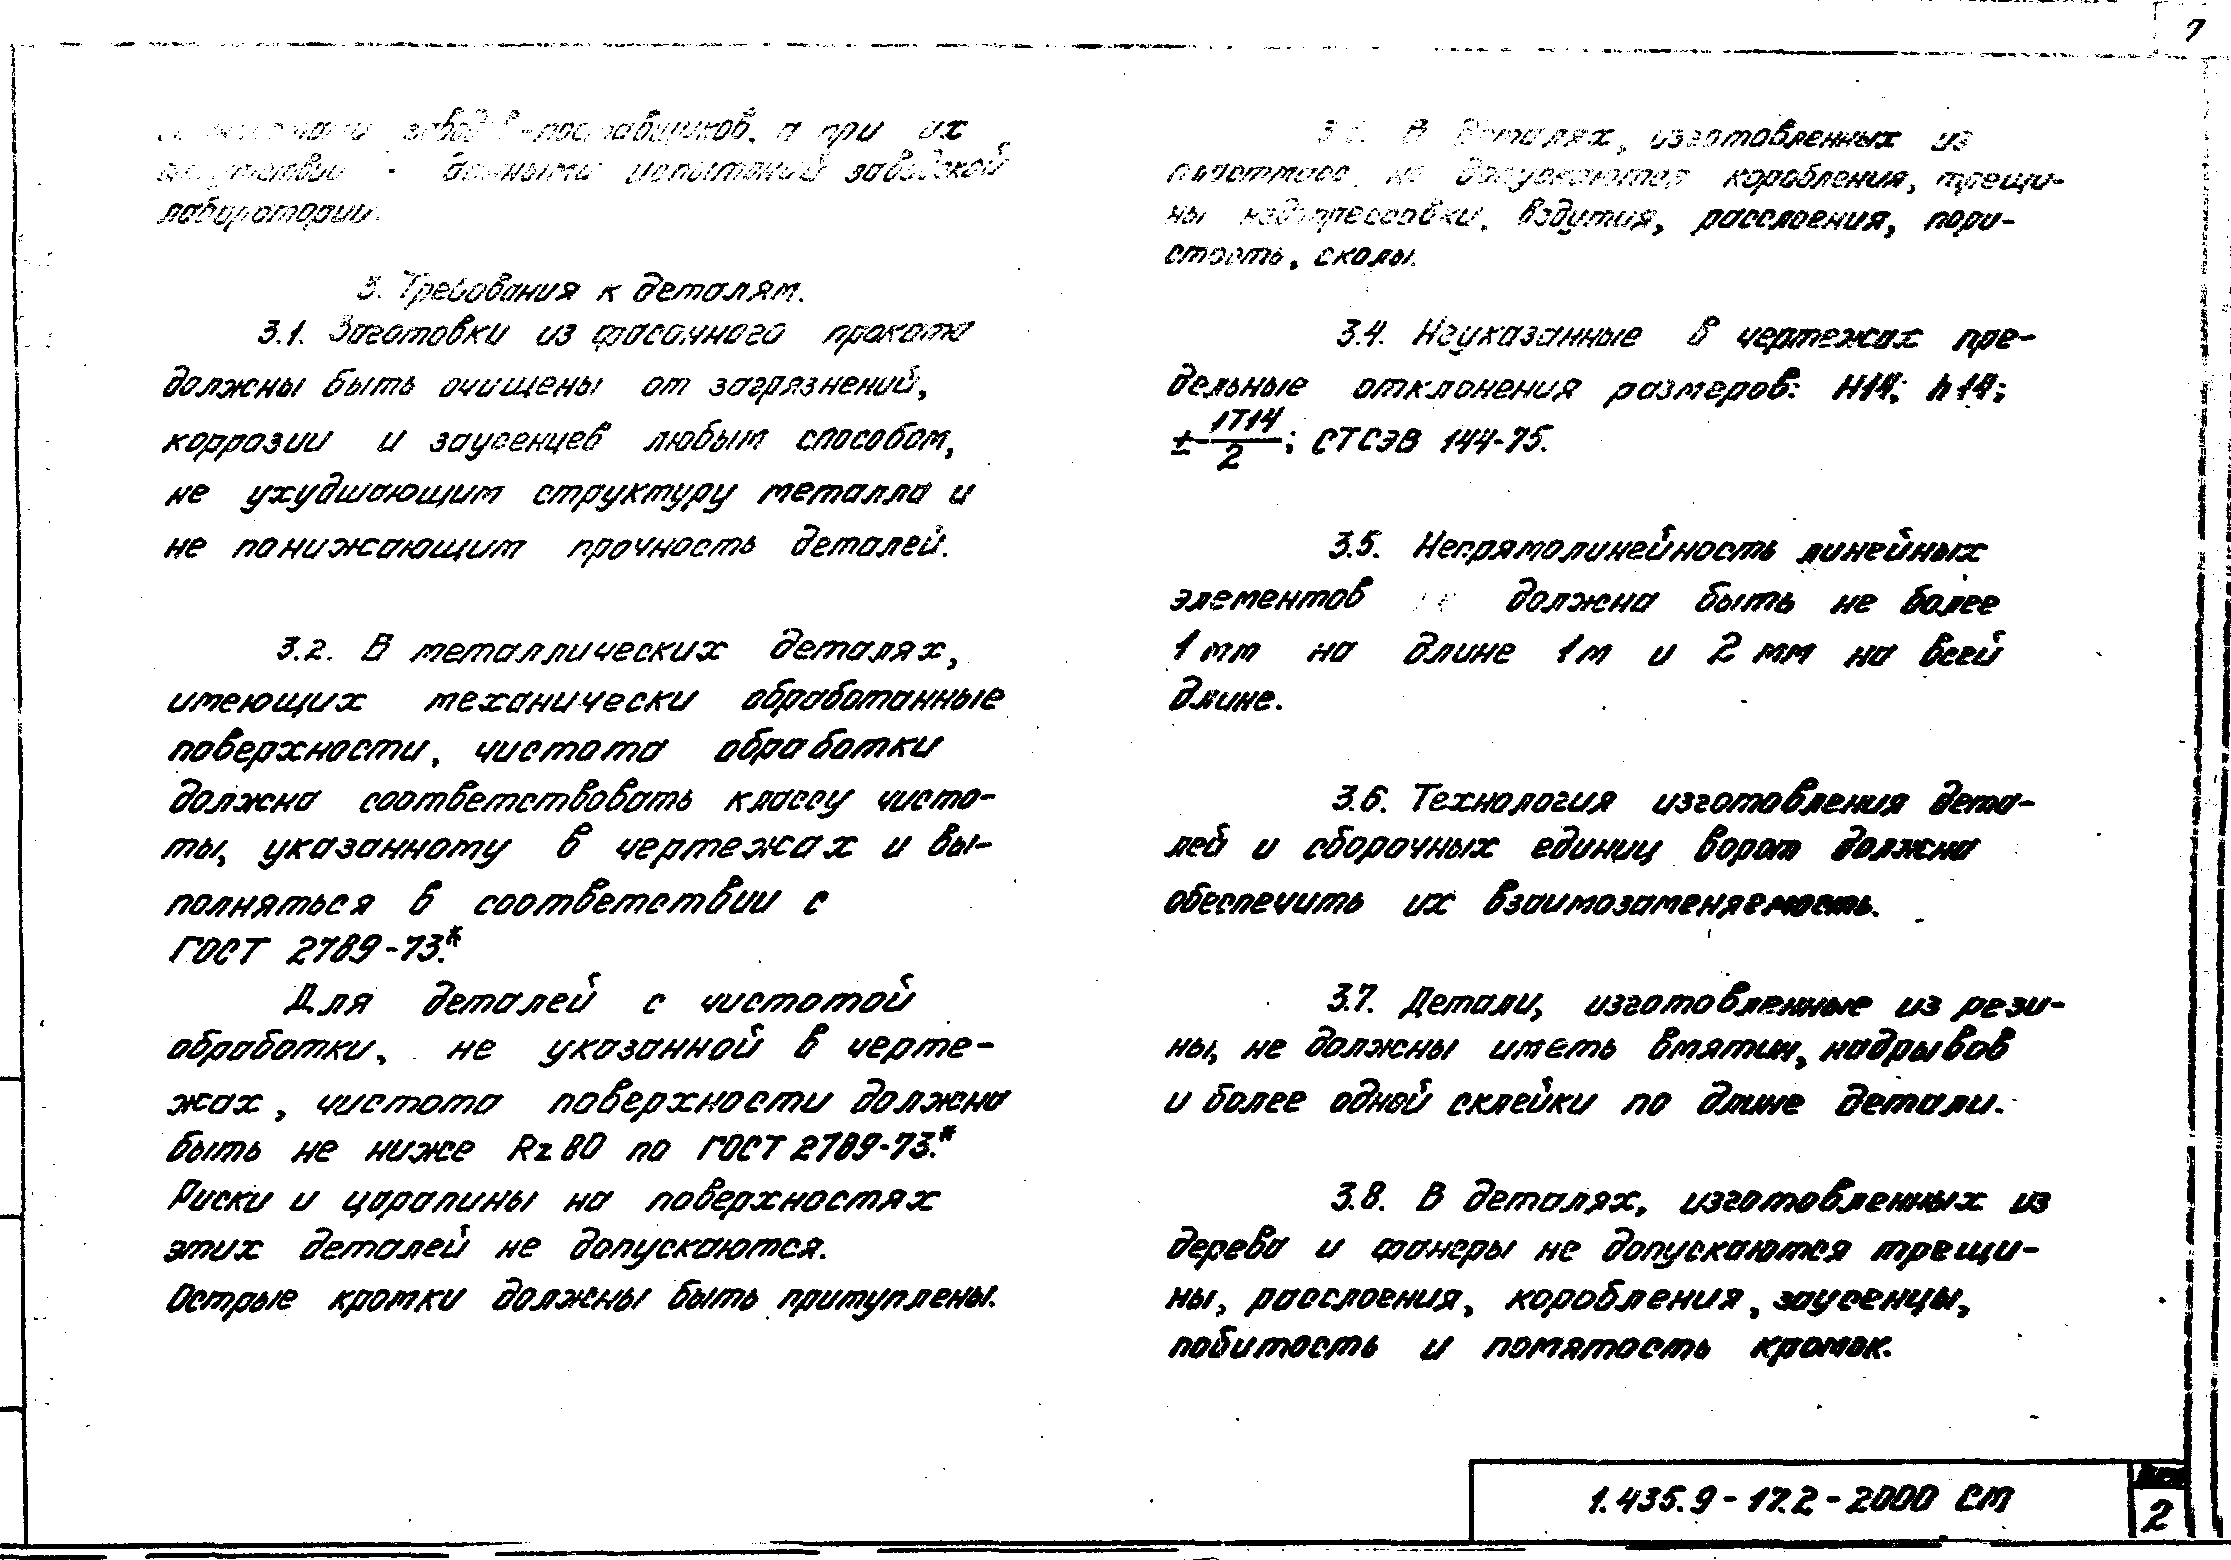 7
завод в-поставщиков, а при их
- данными испытаний заводской
лаборатории.
3. Требования к деталям.
3.1. Заготовки из фасонного проката
должны быть очищены от загрязнений,
коррозии и заусенцев любым способом,
не ухудшающим структуру металла и
не понижающим прочность деталей.
3.2. В металлических деталях,
имеющих механически обработанные
поверхности, чистота обработки
должна соответствовать классу чисто-
ты, указанному в чертежах и вы-
полняться в соответствии с
ГОСТ 2789-73.*
Для деталей с чистотой
обработки, не указанной в черте-
жах, чистота поверхности должна
быть не ниже Rz 80 по ГОСТ 2789-73.*
Риски и царапины на поверхностях
этих деталей не допускаются.
Острые кромки должны быть притуплены.
В деталях, изготовленных из
пластмасс, не допускаются коробления, трещи-
ны недопрессовки, вздутия, расслоения, пори-
стость, сколы.
3.4. Неуказанные в чертежах пре-
дельные отклонения размеров: H14; h14;
± IT14/2; СТ СЭВ 144-75.
3.5. Непрямолинейность линейных
элементов должна быть не более
1 мм на длине 1м и 2 мм на всей
длине.
3.6. Технология изготовления дета-
лей и сборочных единиц ворот должна
обеспечить их взаимозаменяемость.
3.7. Детали, изготовленные из рези-
ны, не должны иметь вмятин, надрывов
и более одной склейки по длине детали.
3.8. В деталях, изготовленных из
дерева и фанеры не допускаются трещи-
ны, расслоения, коробления, заусенцы,
побитость и помятость кромок.
1.435.9-17.2-2000 СМ
2